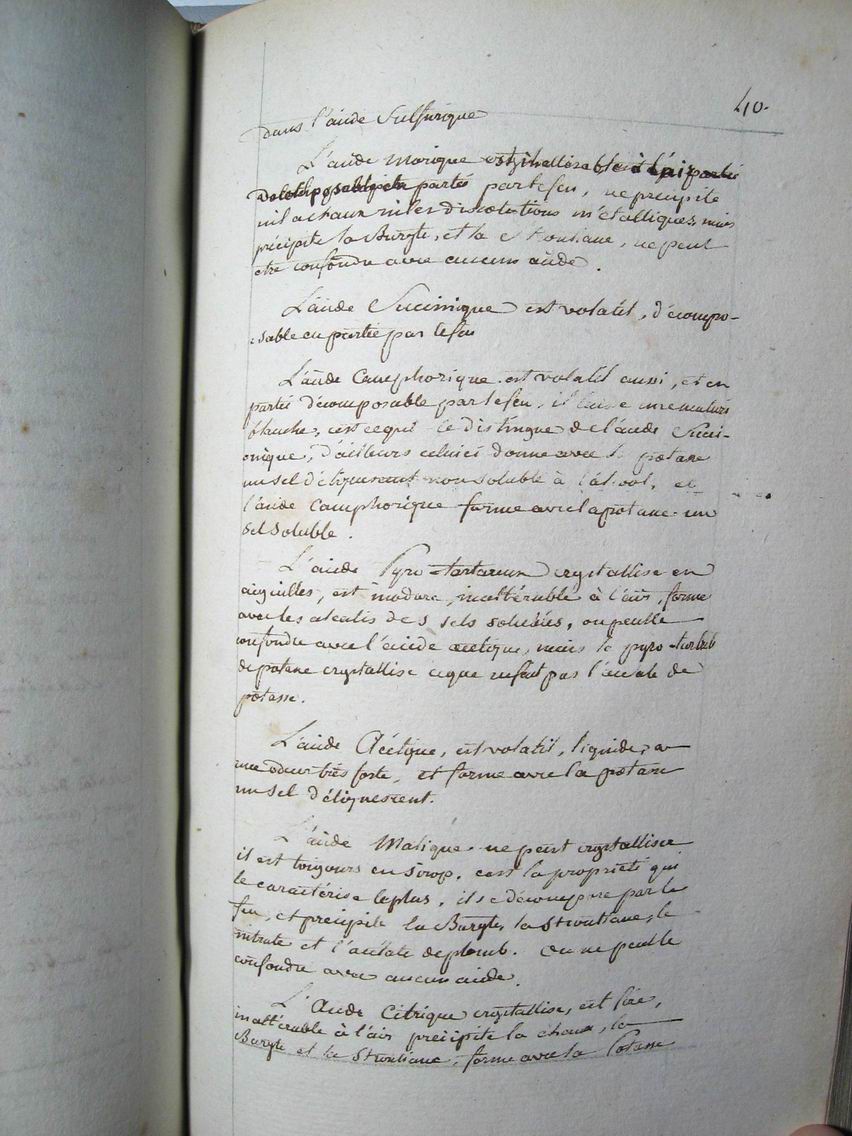 40.
dans l'acide Sulfurique
L'acide Morique est inaltérable à l'air
partie par le feu, ne précipite
ni la chaux ni les dissolutions métalliques, mais
précipite la Baryte, et la Strontiane, ne peut
etre confondu avec aucun acide.
L'acide Succinique est volatil, décompo-
sable en partie par le feu
L'acide Camphorique est volatil aussi, et en
partie décomposable par le feu, il laisse une
blanche, c'est ce qui le distingue de l'acide Succi-
nique, d'ailleurs celui ci donne avec la potasse
un sel déliquescent non soluble à l'alcool, et
l'acide Camphorique forme avec la potasse un
sel soluble.
L'acide Pyro-tartareux crystallise en
aiguilles, est inodore, inaltérable à l'air, forme
avec les alcalis des sels solubles, on peut le
confondre avec l'acide acétique, mais le pyro-tartrite
de potasse crystallise ce que ne fait pas l'acétate de
potasse.
L'acide Acétique, est volatil, liquide, a
une odeur très forte, et forme avec la potasse
un sel déliquescent.
L'acide Malique ne peut crystalliser
il est toujours en sirop, c'est la propriété qui
le caractérise le plus, il se décompose par le
feu, et précipite la Baryte, la Strontiane, le
nitrate et l'acétate de plomb. On ne peut le
confondre avec aucun acide.
L'Acide Citrique crystallise, est fixe,
inaltérable à l'air précipite la chaux, la
Baryte et la Strontiane, forme avec la Potasse